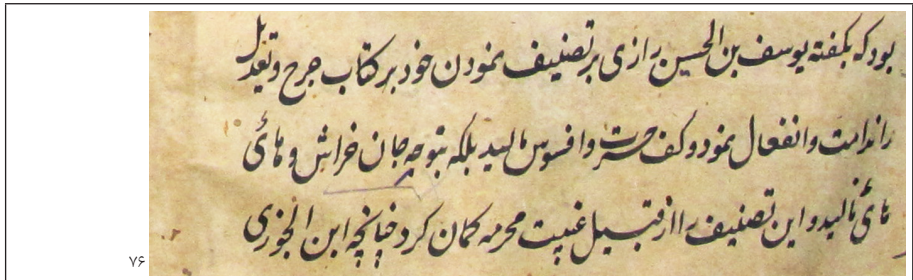 بود که بگفته یوسف بن الحسین رازی بر تصنیف نمودن خود بر کتاب جرح و تعدیل
را ندامت و انفعال نمود و کف حسرت و افسوس مالید بلکه بتوجه جان خراش و های
های نالید و این تصنیف را از قبیل غیبت محرمه کمان کرد چنانچه ابن الجوزی
۷۶